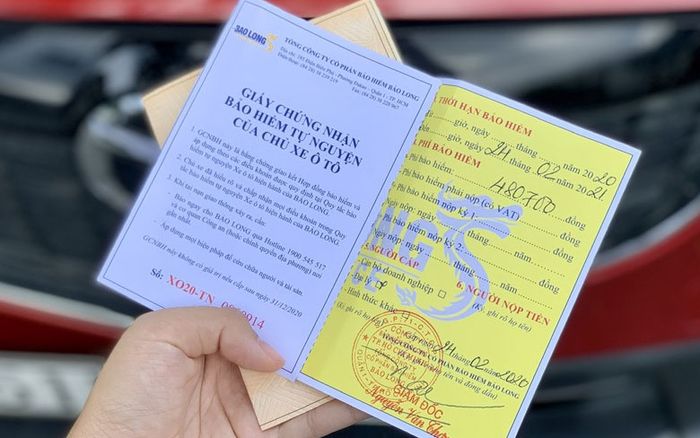 BAO LONG
TỔNG CÔNG TY CỔ PHẦN BẢO HIỂM BẢO LONG
Địa chỉ: 185 Điện Biên Phủ - Phường Đakao - Quận 1 - TP. HCM
Điện thoại: (84 28) 38 239 219 Fax: (84 28) 38 228 967
GIẤY CHỨNG NHẬN
BẢO HIỂM TỰ NGUYỆN
CỦA CHỦ XE Ô TÔ
1. GCNBH này là bằng chứng giao kết Hợp đồng bảo hiểm và
áp dụng theo các điều khoản được quy định tại Quy tắc bảo
hiểm tự nguyện Xe ô tô hiện hành của BẢO LONG.
2. Chủ xe đã hiểu rõ và chấp nhận mọi điều khoản trong Quy
tắc bảo hiểm tự nguyện Xe ô tô hiện hành của BẢO LONG.
3. Khi tai nạn giao thông xảy ra, cần:
- Báo ngay cho BẢO LONG qua Hotline 1900 545 517
và cơ quan Công an (hoặc chính quyền địa phương) nơi
gần nhất.
- Áp dụng mọi biện pháp để cứu chữa người và tài sản
GCNBH này không có giá trị nếu cấp sau ngày 31/12/2020
Số: XO20-TN 0914
THỜI HẠN BẢO HIỂM
giờ, ngày 24 tháng 02 năm 2020
giờ, ngày 24 tháng 02 năm 2021
PHÍ BẢO HIỂM
Phí bảo hiểm: đồng
Phí bảo hiểm phải nộp (có VAT) 480.700 đồng
Phí bảo hiểm nộp kỳ 1: đồng
nộp: ngày tháng năm
Phí bảo hiểm nộp kỳ 2: đồng
nộp: ngày tháng năm
NGƯỜI CẤP
doanh nghiệp
6. NGƯỜI NỘP TIỀN
(ký ghi rõ họ tên)
Hình thức khác
(Ký ghi rõ họ tên)
24 tháng 02 năm 2020
TỔNG CÔNG TY CỔ PHẦN BẢO HIỂM BẢO LONG
GIÁM ĐỐC
Nguyễn Văn